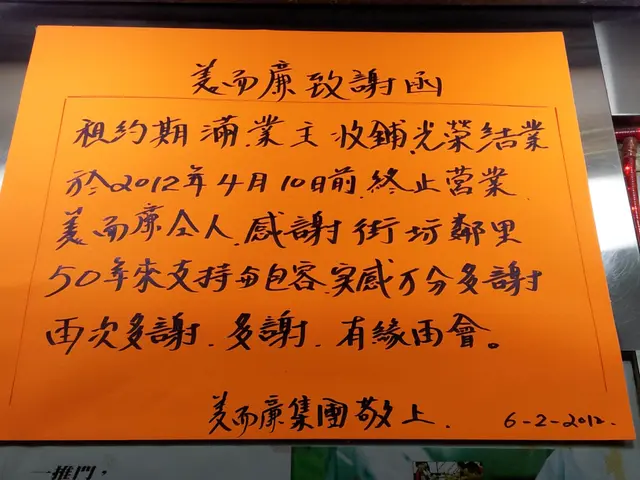 美而廉致謝函
租約期滿,業主收鋪,光榮結業
於2012年4月10日前,終止營業
美而廉仝人,感謝街坊鄰里
50年來支持与包容,実感万分多謝
再次多謝.多謝.有緣再會。
美而廉集團敬上.
6-2-2012.
一推門,